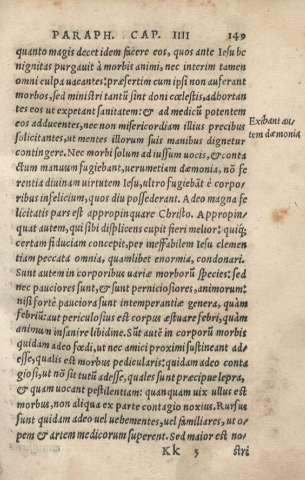 PARAPH. CAP. IIII 149
quanto magis decet idem facere eos, quos ante Iesu be
nignitas purgauit à morbis animi, nec interim tamen
omni culpa uacantes: præsertim cum ipsi non auferant
morbos, sed ministri tantū sint doni cœlestis, adhortan
tes eos ut expetant sanitatem: & ad medicū potentem
eos adducentes, nec non misericordiam illius precibus
solicitantes, ut mentes illorum suis manibus dignetur
contingere. Nec morbi solum ad iussum uocis, & conta
ctum manuum fugiebant, uerumetiam dæmonia, nō fe
rentia diuinam uirtutem Iesu, ultro fugiebāt è corpo/
ribus infelicium, quos diu possederant. Adeo magna fe
licitatis pars est appropinquare Christo. Appropin,
quat autem, qui sibi displicens cupit fieri melior: quiq;
certam fiduciam concepit, per ineffabilem Iesu clemen
tiam peccata omnia, quamlibet enormia, condonari.
Sunt autem in corporibus uariæ morborū species: sed
nec pauciores sunt, & sunt perniciosiores, animorum:
nisi fortè pauciora sunt intemperantiæ genera, quàm
febriū: aut periculosius est corpus æstuare febri, quàm
animum insanire libidine. Sūt autē in corporū morbis
quidam adeo fœdi, ut nec amici proximi sustineant ad/
esse, qualis est morbus pedicularis: quidam adeo conta
giosi, ut nō sit tutū adesse, quales sunt præcipue lepra,
& quam uocant pestilentiam: quanquam uix ullus est
morbus, non aliqua ex parte contagio noxius. Rursus
sunt quidam adeo uel uehementes, uel familiares, ut o/
pem & artem medicorum superent. Sed maior est no/
Exibant au/
tem dæmonia
Kk 5 stri